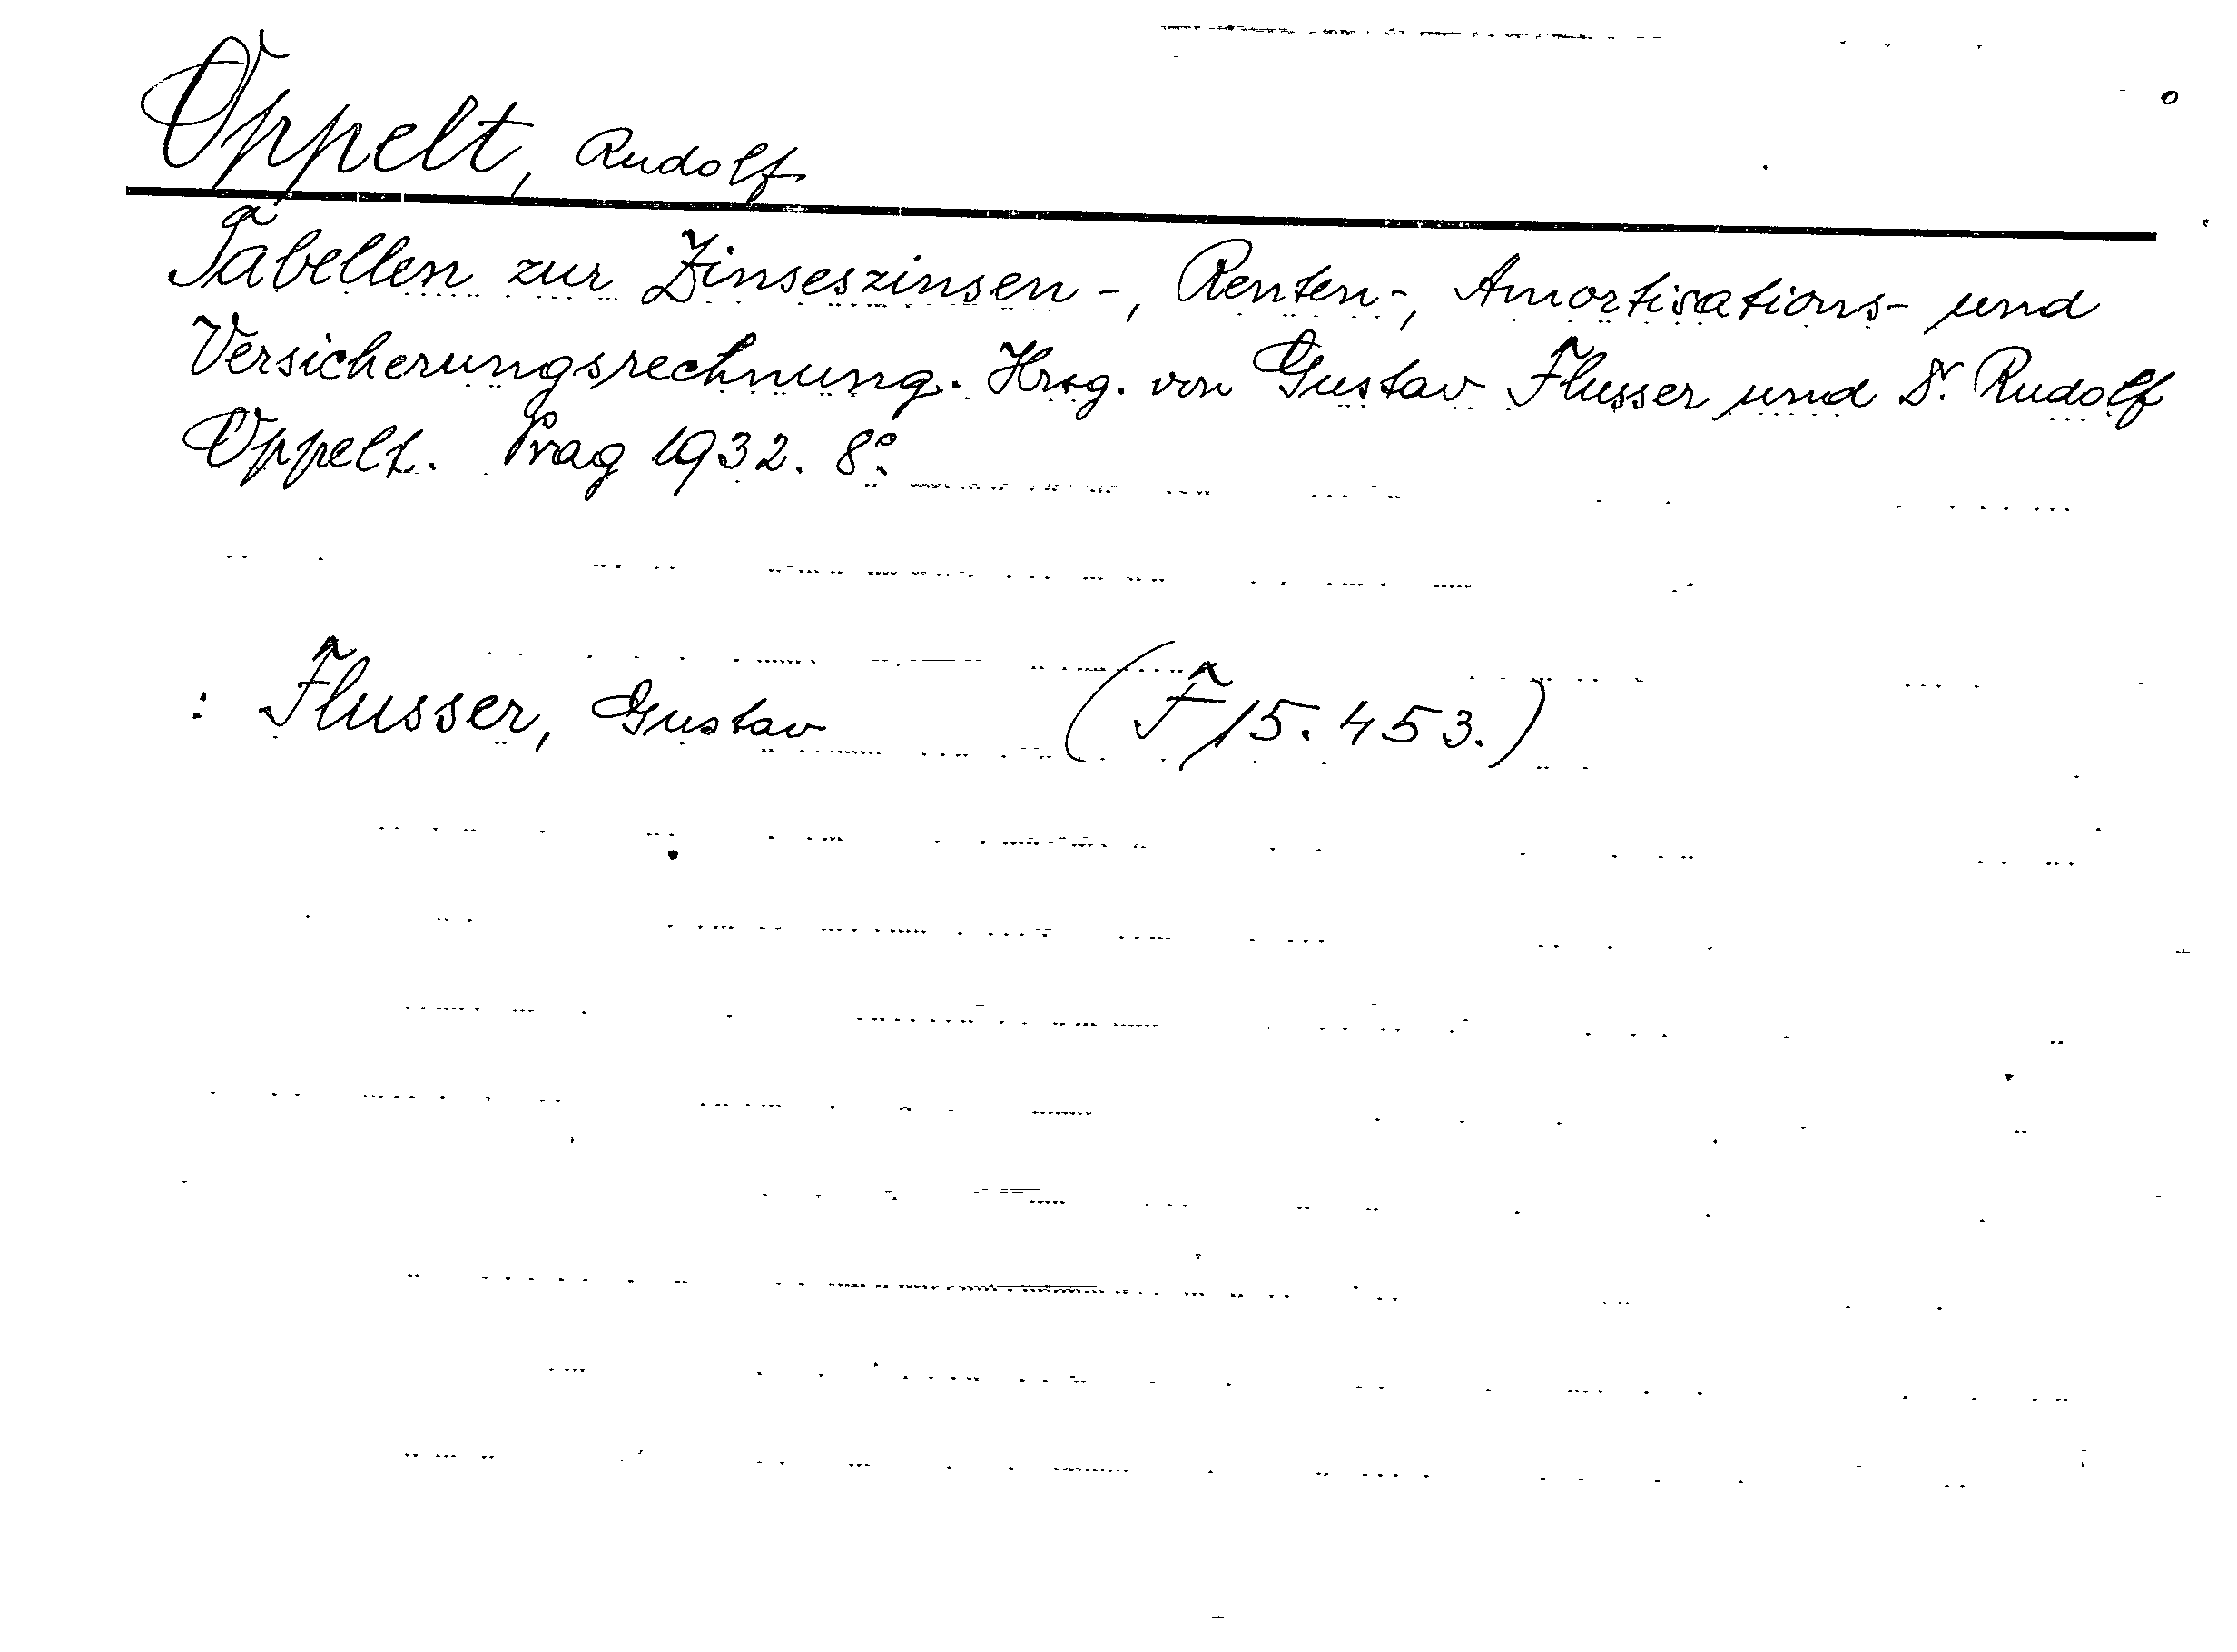 Oppelt, Rudolf
Tabellen zur Zinseszinsen-, Renten-, Amortisations- und
Versicherungsrechnung. Hrsg. von Gustav Flusser und Dr. Rudolf
Oppelt. Prag 1932. 8°.
: Flusser, Gustav (F 15.453.)